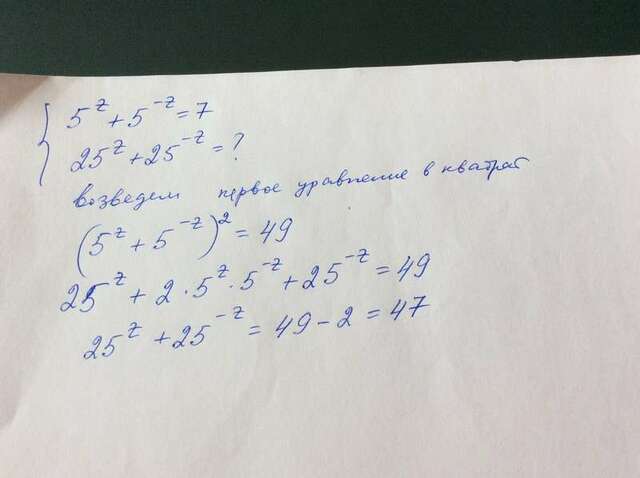 { 5^z + 5^{-z} = 7
25^z + 25^{-z} = ?
возведем первое уравнение в квадрат
(5^z + 5^{-z})^2 = 49
25^z + 2 · 5^z · 5^{-z} + 25^{-z} = 49
25^z + 25^{-z} = 49 - 2 = 47